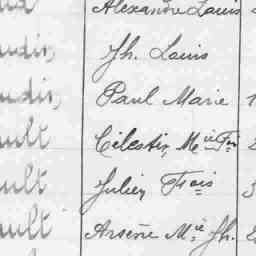 Alexandre Louis
udis, Jh. Louis
udis, Paul Marie 1
ault Célestin Mie Fis
ault Julien Frois
ault Arsène Mie Jh.